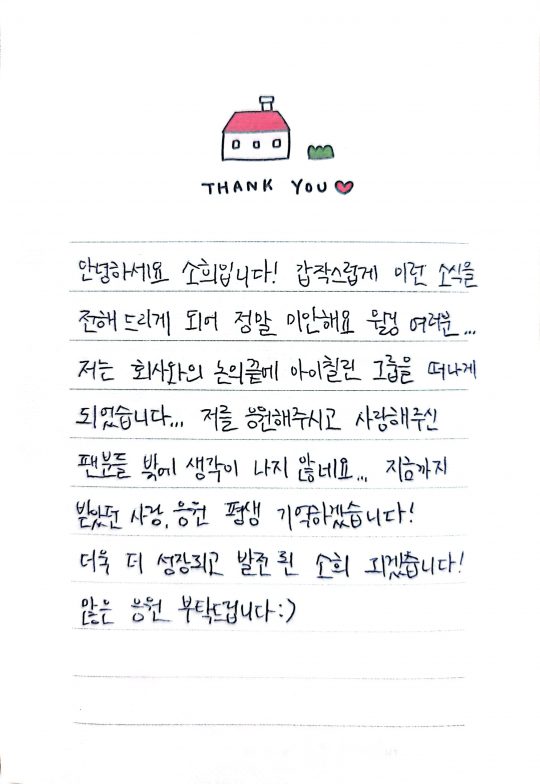 THANK YOU
안녕하세요 소희입니다! 갑작스럽게 이런 소식을
전해 드리게 되어 정말 미안해요 월링 여러분...
저는 회사와의 논의끝에 아이칠린 그룹을 떠나게
되었습니다... 저를 응원해주시고 사랑해주신
팬분들 밖에 생각이 나지 않네요... 지금까지
받았던 사랑, 응원 평생 기억하겠습니다!
더욱 더 성장되고 발전 된 소희 되겠습니다!
많은 응원 부탁드립니다:)